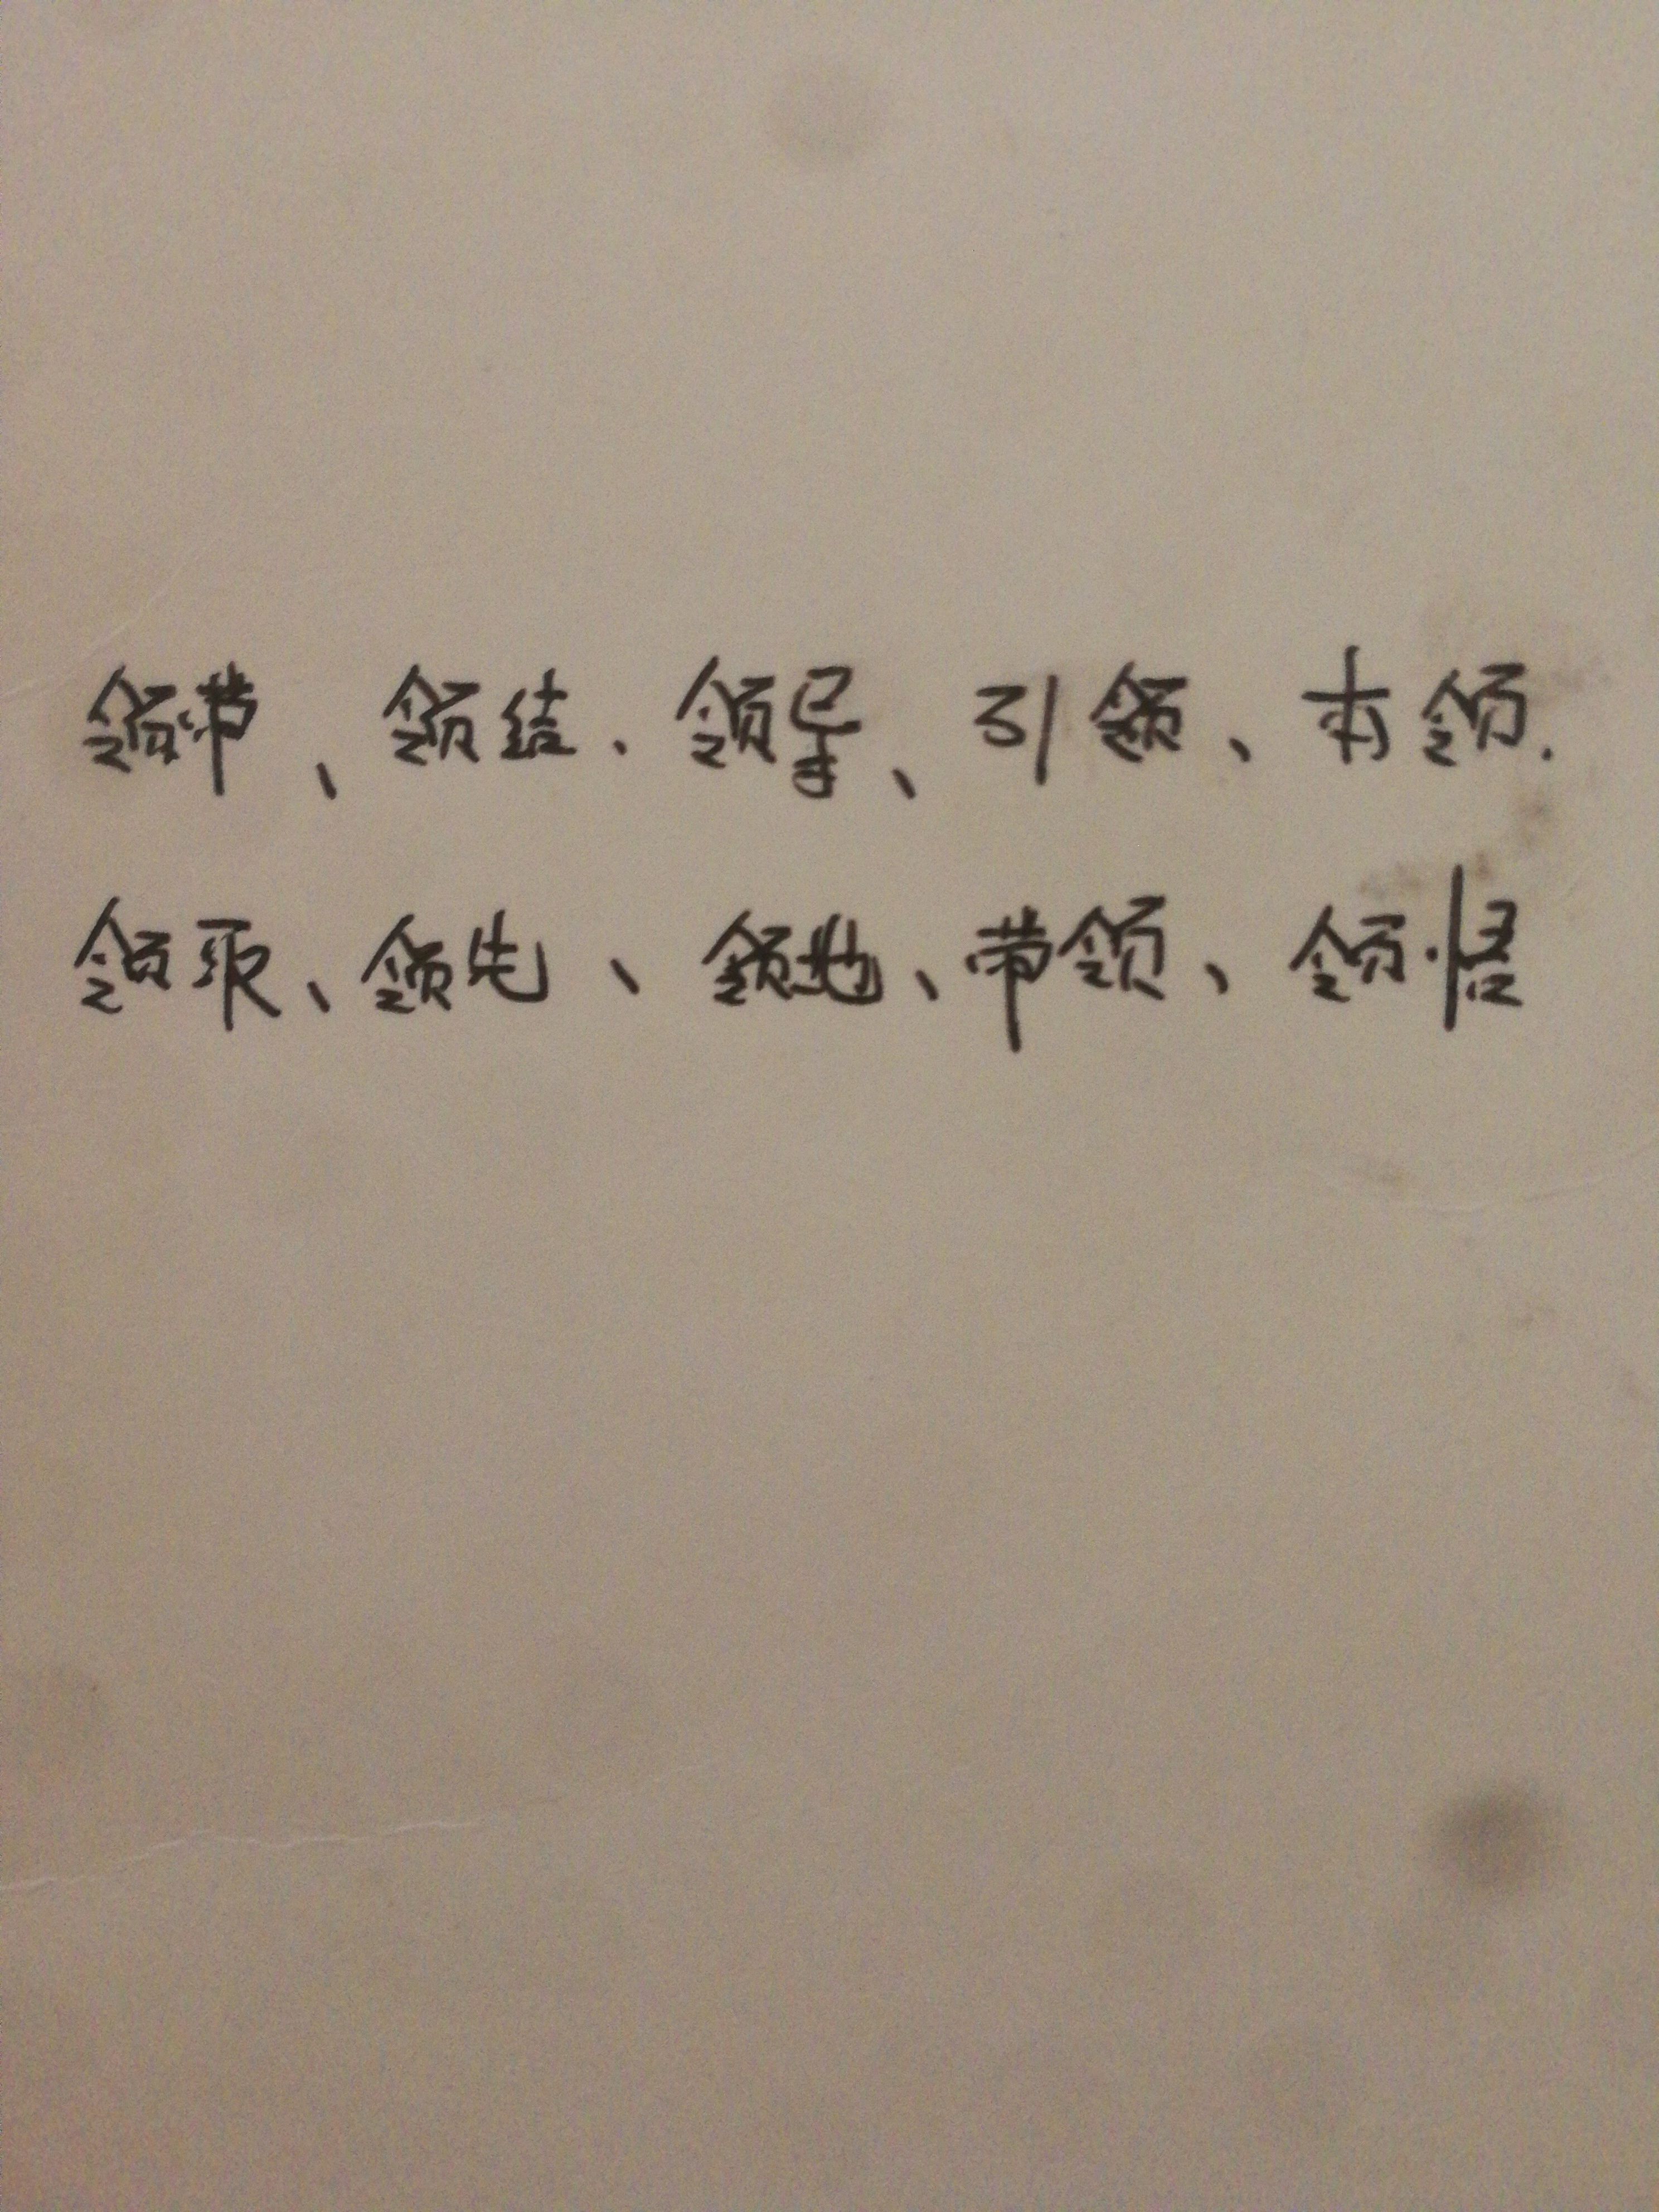 领带、领结、领导、引领、本领.
领取、领先、领地、带领、领悟